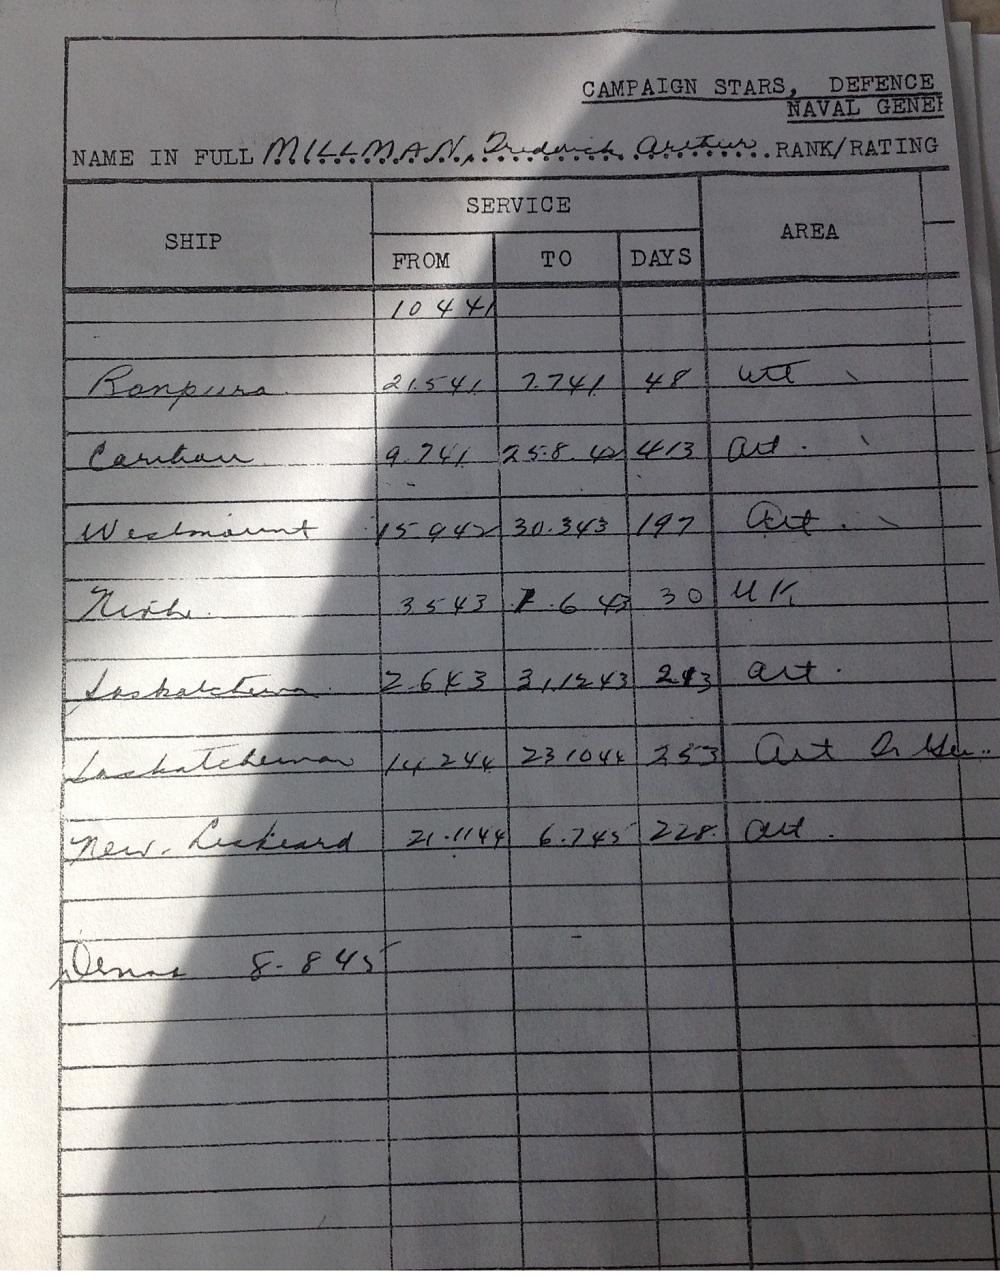 CAMPAIGN STARS, DEFENCE
NAVAL GENE
NAME IN FULL MILLMAN, Fredrick Arthur RANK/RATING
SHIP SERVICE AREA
FROM TO DAYS
10 4 41
Ranpura 21.5 41 7.7 41 48 att
Caribou 9.7 41 25.8.42 413 att.
Westmount 15 9 42 30.3 43 197 att.
3 5 43 1.6 43 30 UK
Saskatchewan 2.6 43 31.12 43 213 att.
Saskatchewan 14 2 44 23 10 44 253 att
New. Liskeard 21.11 44 6.7 45 228 att.
8.8 45